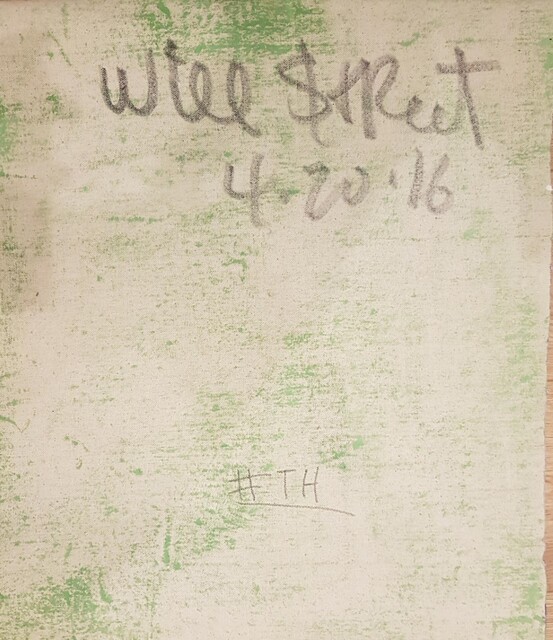 Will $treet
4.20.16
#TH